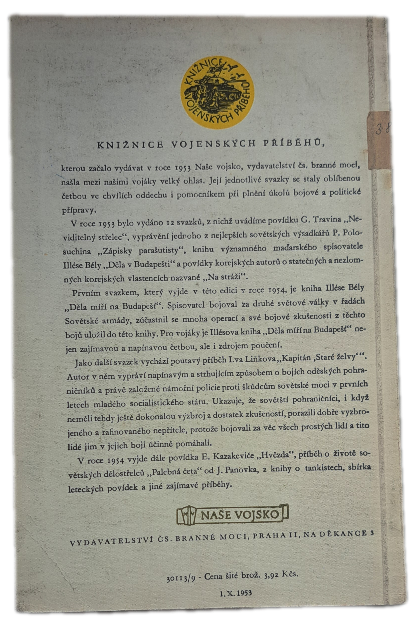 KNIŽNICE VOJENSKÝCH PŘÍBĚHŮ
KNIŽNICE VOJENSKÝCH PŘÍBĚHŮ,
kterou začalo vydávat v roce 1953 Naše vojsko, vydavatelství čs. branné moci,
našla mezi našimi vojáky velký ohlas. Její jednotlivé svazky se staly oblíbenou
četbou ve chvílích oddechu i pomocníkem při plnění úkolů bojové a politické
přípravy.
V roce 1953 bylo vydáno 12 svazků, z nichž uvádíme povídku G. Travina „Ne-
viditelný střelec“, vyprávění jednoho z nejlepších sovětských výsadkářů P. Polo-
suchina „Zápisky parašutisty“, knihu významného maďarského spisovatele
Illése Bély „Děla v Budapešti“ a povídky korejských autorů o statečných a nezlom-
ných korejských vlastencích nazvané „Na stráži“.
Prvním svazkem, který vyjde v této edici v roce 1954, je kniha Illése Bély
„Děla míří na Budapešť“. Spisovatel bojoval za druhé světové války v řadách
Sovětské armády, zúčastnil se mnoha operací a své bojové zkušenosti z těchto
bojů uložil do této knihy. Pro vojáky je Illésova kniha „Děla míří na Budapešť“ ne-
jen zajímavou a napínavou četbou, ale i zdrojem poučení.
Jako další svazek vychází poutavý příběh Lva Liňkova „Kapitán ‚Staré želvy‘“.
Autor v něm vypráví napínavým a strhujícím způsobem o bojích oděských pohra-
ničníků a právě založené námořní policie proti škůdcům sovětské moci v prvních
letech mladého socialistického státu. Ukazuje, že sovětští pohraničníci, i když
neměli tehdy ještě dokonalou výzbroj a dostatek zkušeností, porazili dobře vyzbro-
jeného a rafinovaného nepřítele, protože bojovali za věc všech prostých lidí a tito
lidé jim v jejich boji účinně pomáhali.
V roce 1954 vyjde dále povídka E. Kazakeviče „Hvězda“, příběh o životě so-
větských dělostřelců „Palebná četa“ od J. Panovka, z knihy o tankistech, sbírka
leteckých povídek a jiné zajímavé příběhy.
NAŠE VOJSKO
VYDAVATELSTVÍ ČS. BRANNÉ MOCI, PRAHA II, NA DĚKANCE 3
30113/9 - Cena šité brož. 3,92 Kčs.
1. X. 1953